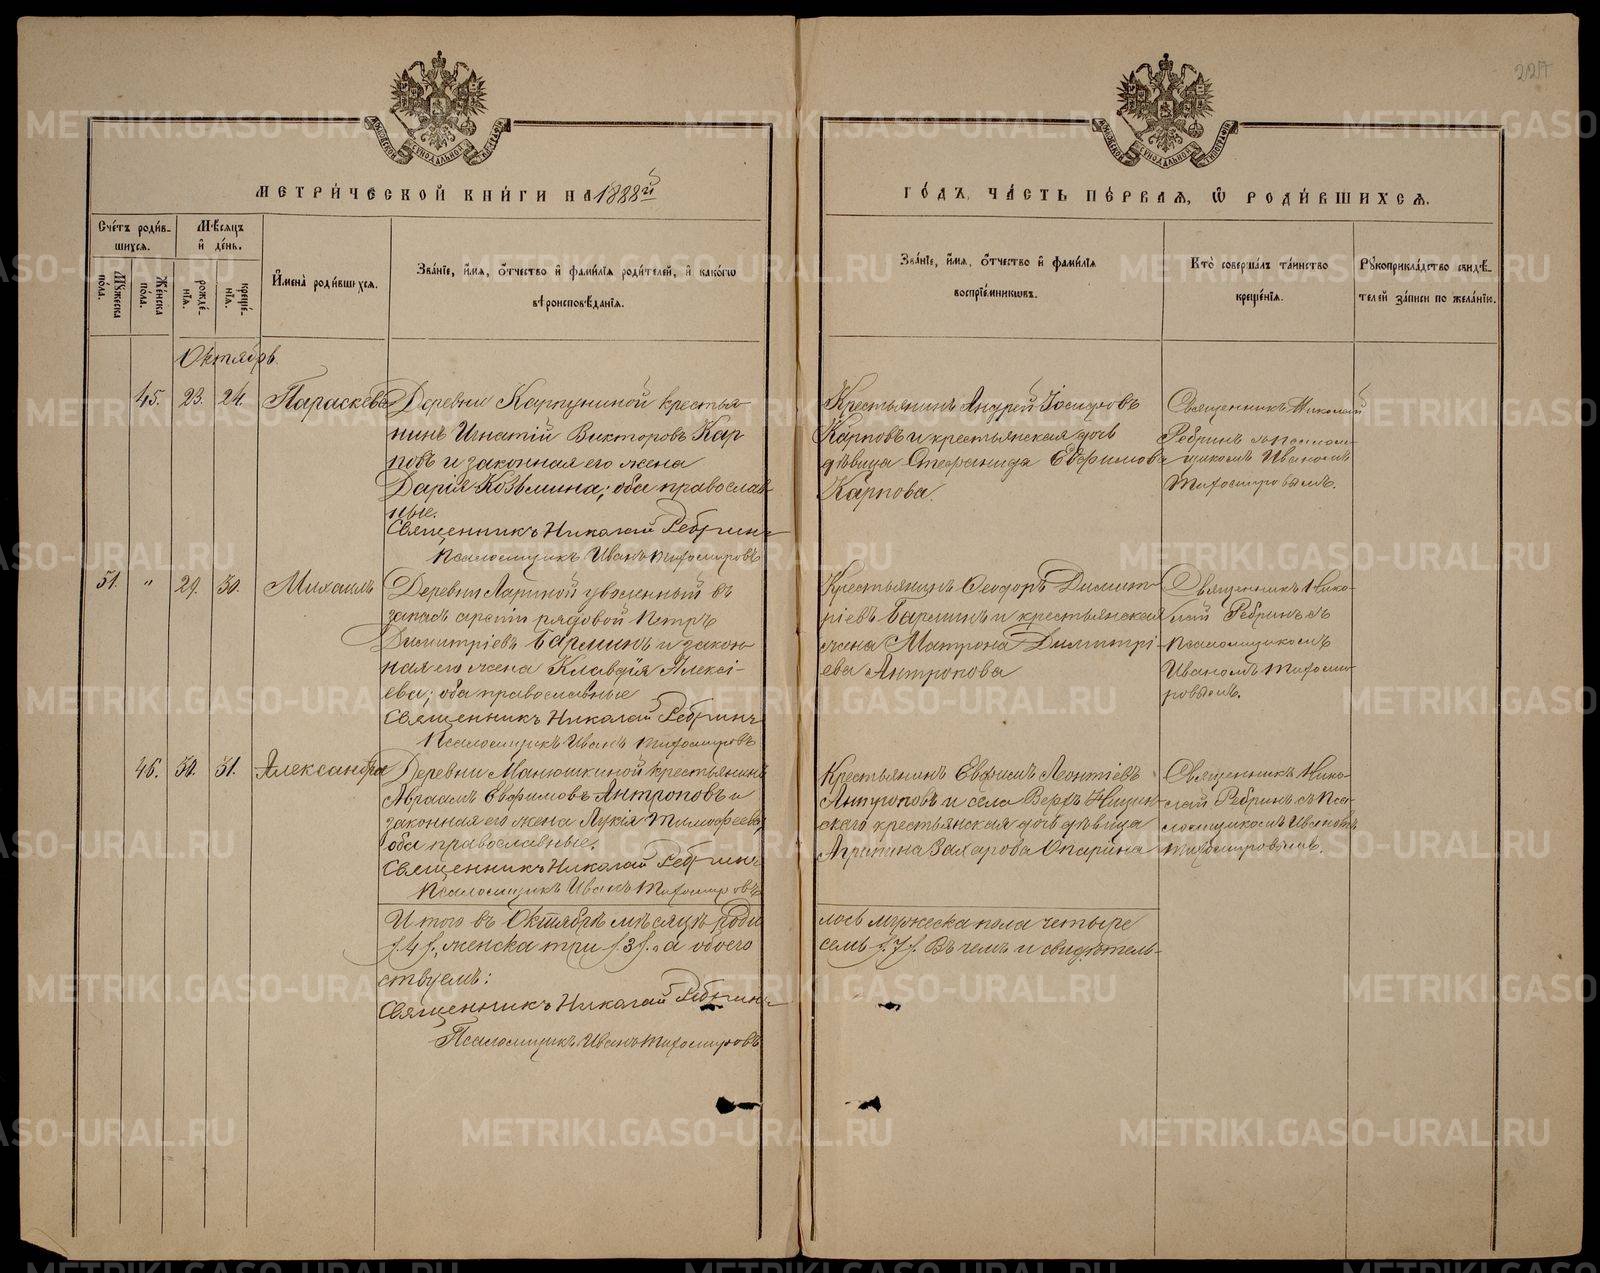 227
МЕТРИ́ЧЕСКОЙ КНИ́ГИ НА 1888й
ГО́ДЪ, ЧА́СТЬ ПЕ́РВАЯ, Ѽ РОДИ́ВШИХСЯ.
Сче́тъ роди́в-
шихся.
Мѣсяцъ
и҆ де́нь.
Мꙋжеска
по́ла.
Же́нска
по́ла.
рожде́-
нїя.
креще́-
нїя.
И҆мена̀ роди́вшихся.
Зва́нїе, и҆́мя, ѻ҆́тчество и҆ фами́лїя роди́телей, и҆ како́гѡ
вѣроисповѣ́данїя.
Зва́нїе, и҆́мя, ѻ҆́тчество и҆ фами́лїя
воспрїе́мникѡвъ.
Кто̀ соверша́лъ та́инство
креще́нїя.
Рꙋкоприкла́дство свидѣ́-
телей за́писи по жела́нїю.
Октябрь.
45. 23. 24. Параскева
Деревни Карпуниной крестья-
нинъ Игнатій Викторовъ Кар
повъ и законная его жена
Дарія Козьмина; оба православ-
ные.
Священникъ Николай Ребринъ
Псаломщикъ Иванъ Тихомировъ
Крестьянинъ Андрей Іосифовъ
Карповъ и крестьянская дочь
дѣвица Стефанида Евфимова
Карпова.
Священникъ Николай
Ребринъ съ псалом-
щикомъ Иваномъ
Тихомировымъ.
51. " 29. 30. Михаилъ
Деревни Лариной уволенный въ
запасъ арміи рядовой Петръ
Димитріевъ Барминъ и закон-
ная его жена Клавдія Алексі-
ева; оба православные
Священникъ Николай Ребринъ
Псаломщикъ Иванъ Тихомировъ
Крестьянинъ Ѳеодоръ Димит-
ріевъ Барминъ и крестьянская
жена Матрона Димитрі-
ева Антропова
Священникъ Нико-
лай Ребринъ съ
Псаломщикомъ
Иваномъ Тихоми-
ровымъ.
46. 30. 31. Александра
Деревни Манюшкиной крестьянинъ
Авраамъ Евфимовъ Антроповъ и
законная его жена Лукія Тимофеева;
оба православные.
Священникъ Николай Ребринъ
Псаломщикъ Иванъ Тихомировъ
Крестьянинъ Евфимъ Леонтіевъ
Антроповъ и села Верхъ Ницин-
скаго крестьянская дочь дѣвица
Агрипина Захарова Опарина
Священникъ Нико-
лай Ребринъ съ Пса-
ломщикомъ Иваномъ
Тихомировымъ.
Итого въ Октябрѣ мѣсяцѣ роди
лось мужеска пола четыре
/4/, женска три /3/, а обоего
семь /7/. Въ чемъ и свидѣтель-
ствуемъ:
Священникъ Николай Ребринъ
Псаломщикъ Иванъ Тихомировъ
METRIKI.GASO-URAL.RU